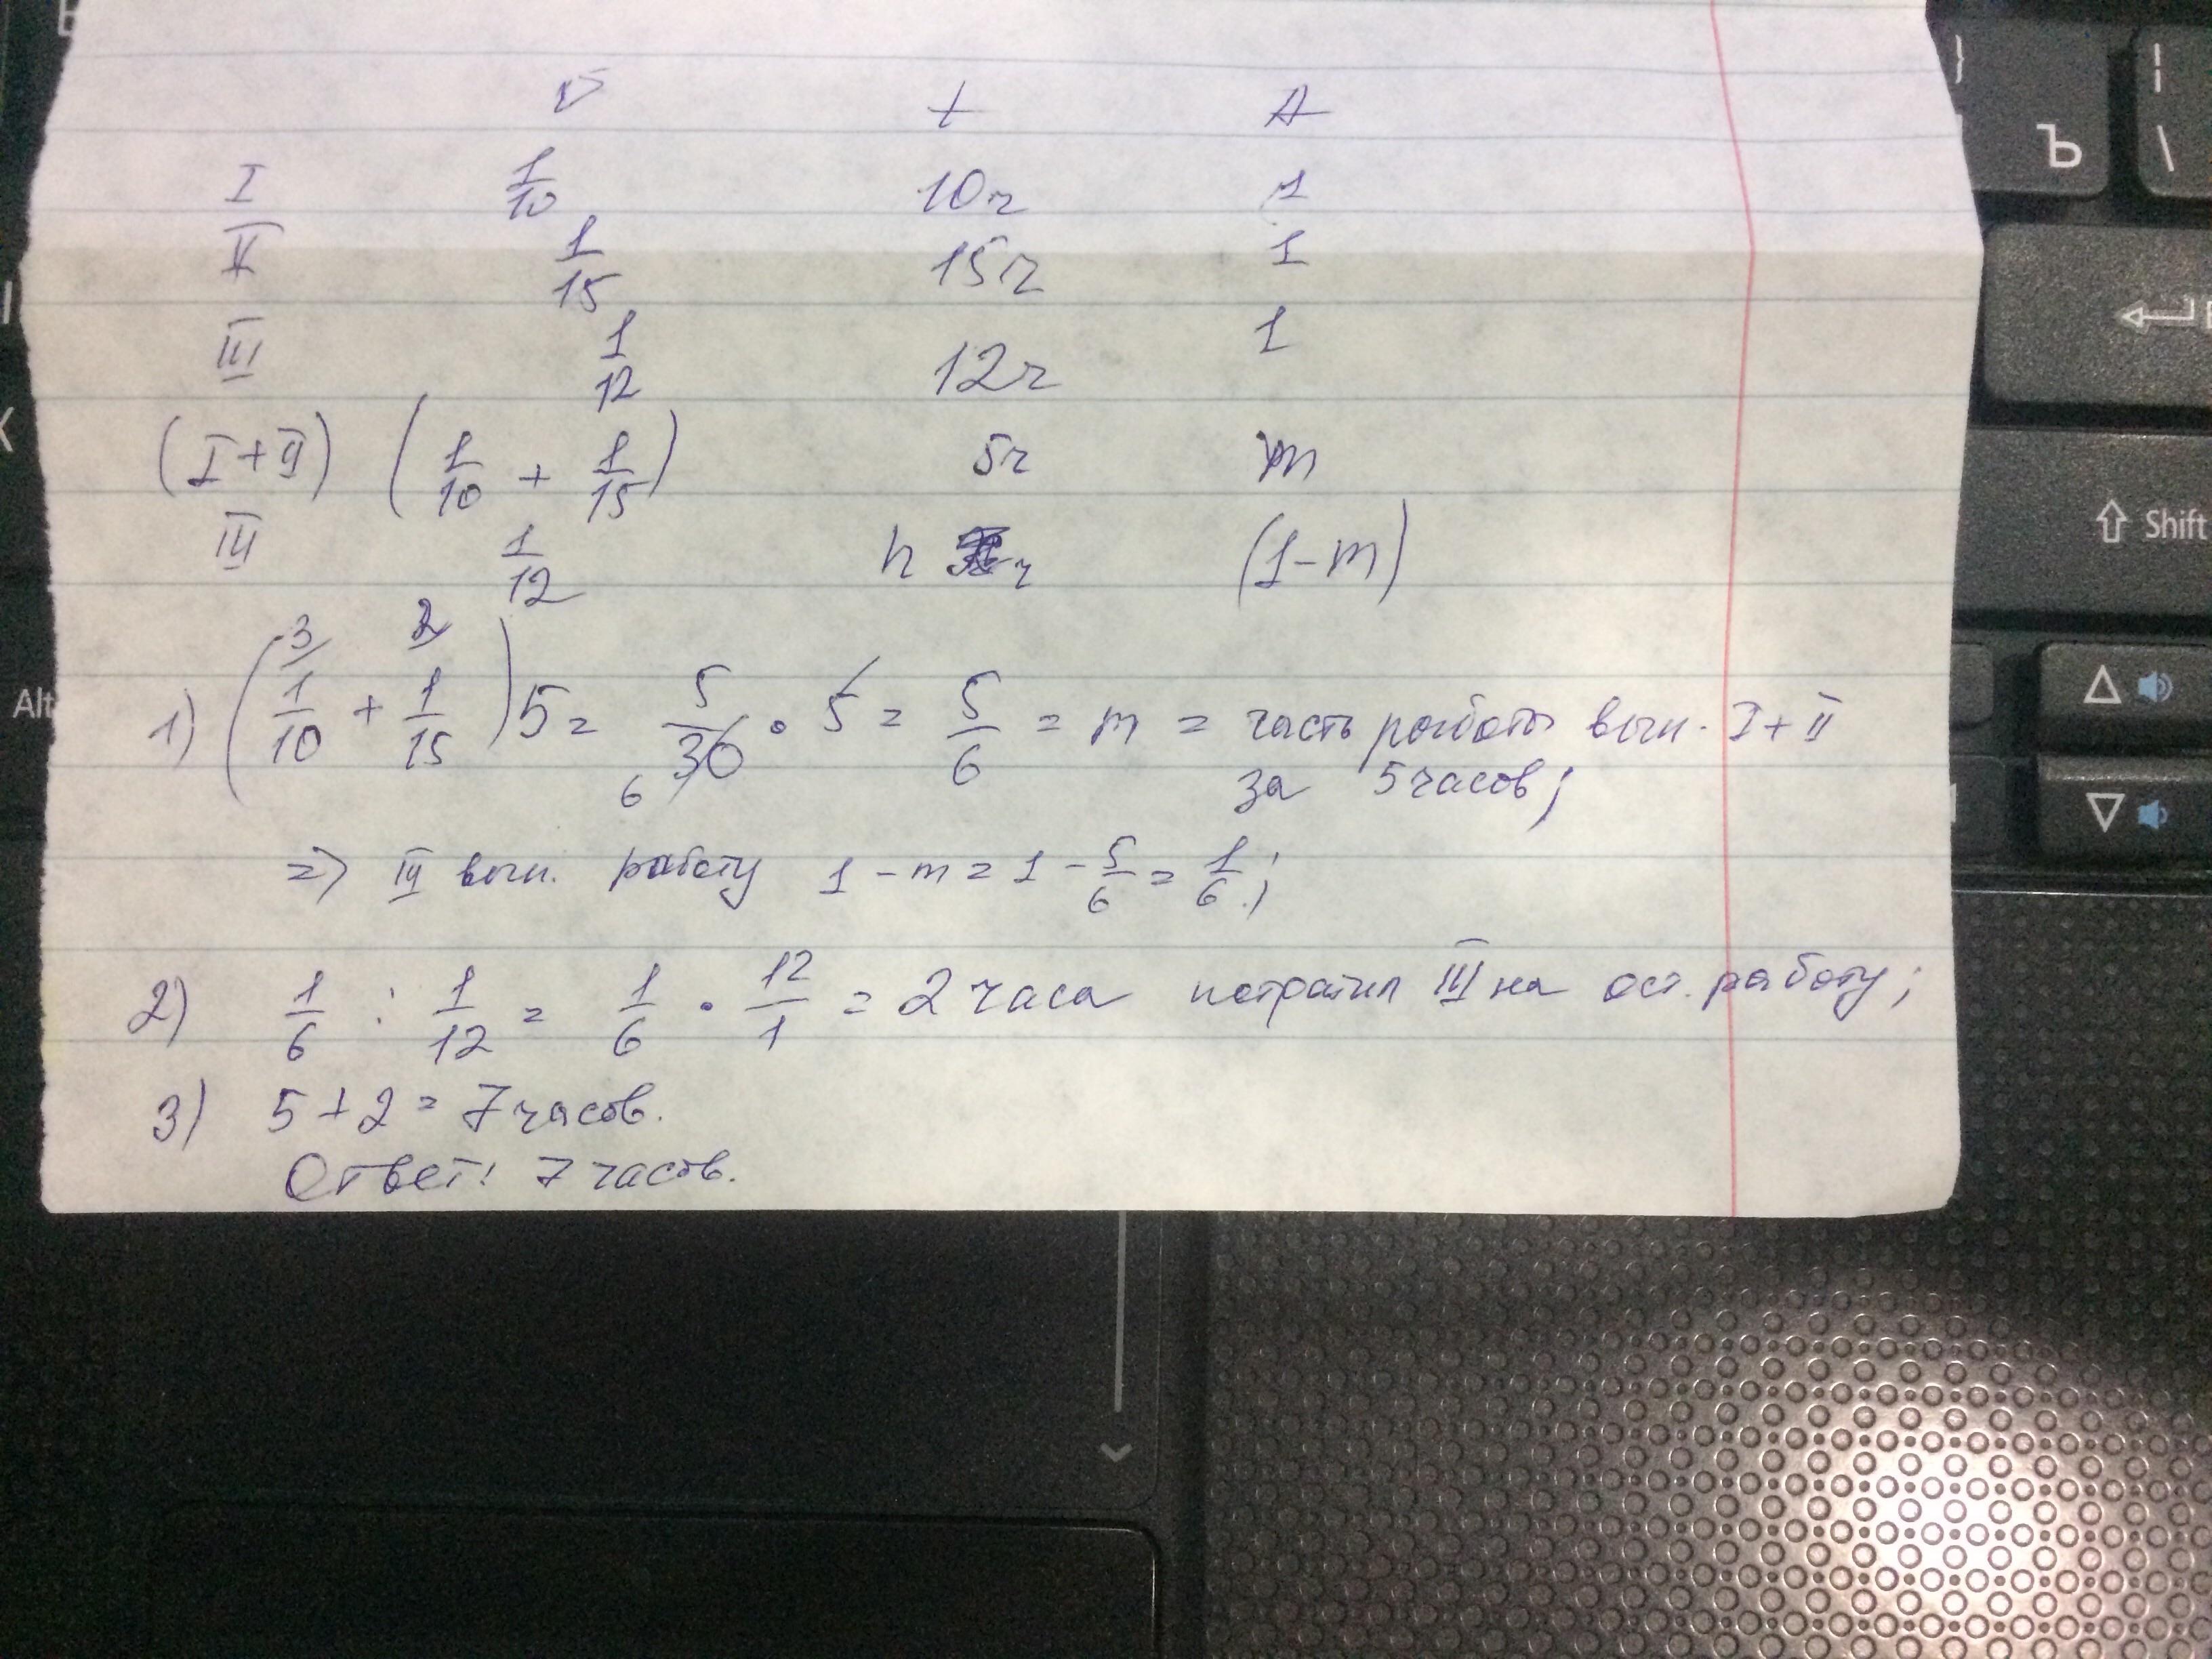 v t A
I 1/10 10ч 1
II 1/15 15ч 1
III 1/12 12ч 1
(I+II) (1/10 + 1/15) 5ч m
III 1/12 n ч (1-m)
1) (3/ 1/10 + 2/ 1/15) 5 = 5/30 6 · 5 = 5/6 = m = часть работы вып. I+II
за 5 часов;
=> III вып. работу 1-m = 1 - 5/6 = 1/6;
2) 1/6 : 1/12 = 1/6 · 12/1 = 2 часа потратил III на ост. работу;
3) 5+2 = 7 часов.
Ответ: 7 часов.
Ъ
}
|
\
Shift
Alt